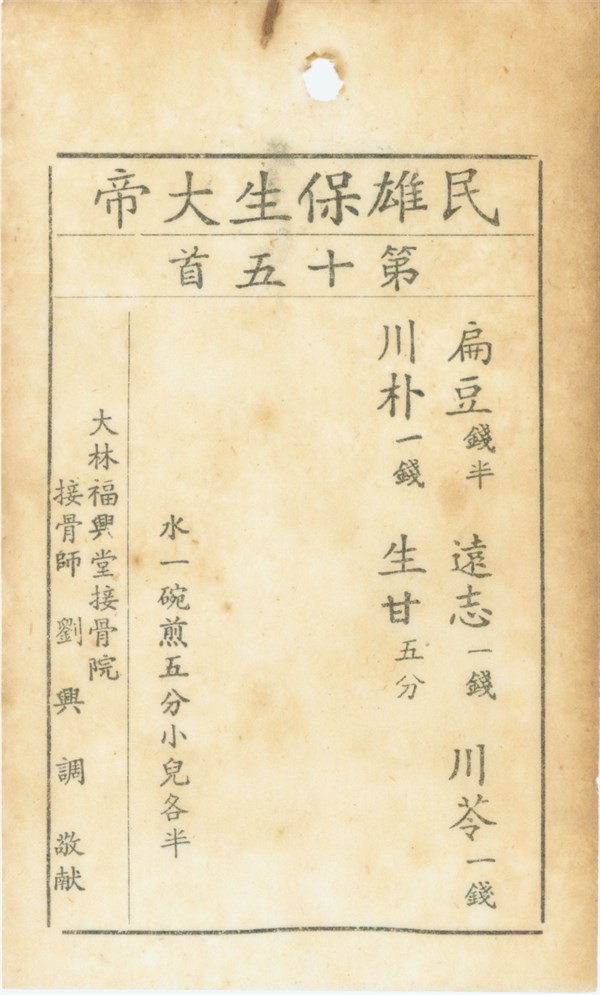 民雄保生大帝
第十五首
扁豆錢半 遠志一錢 川苓一錢
川朴一錢 生甘五分
水一碗煎五分小兒各半
大林福興堂接骨院
接骨師 劉興調 敬献